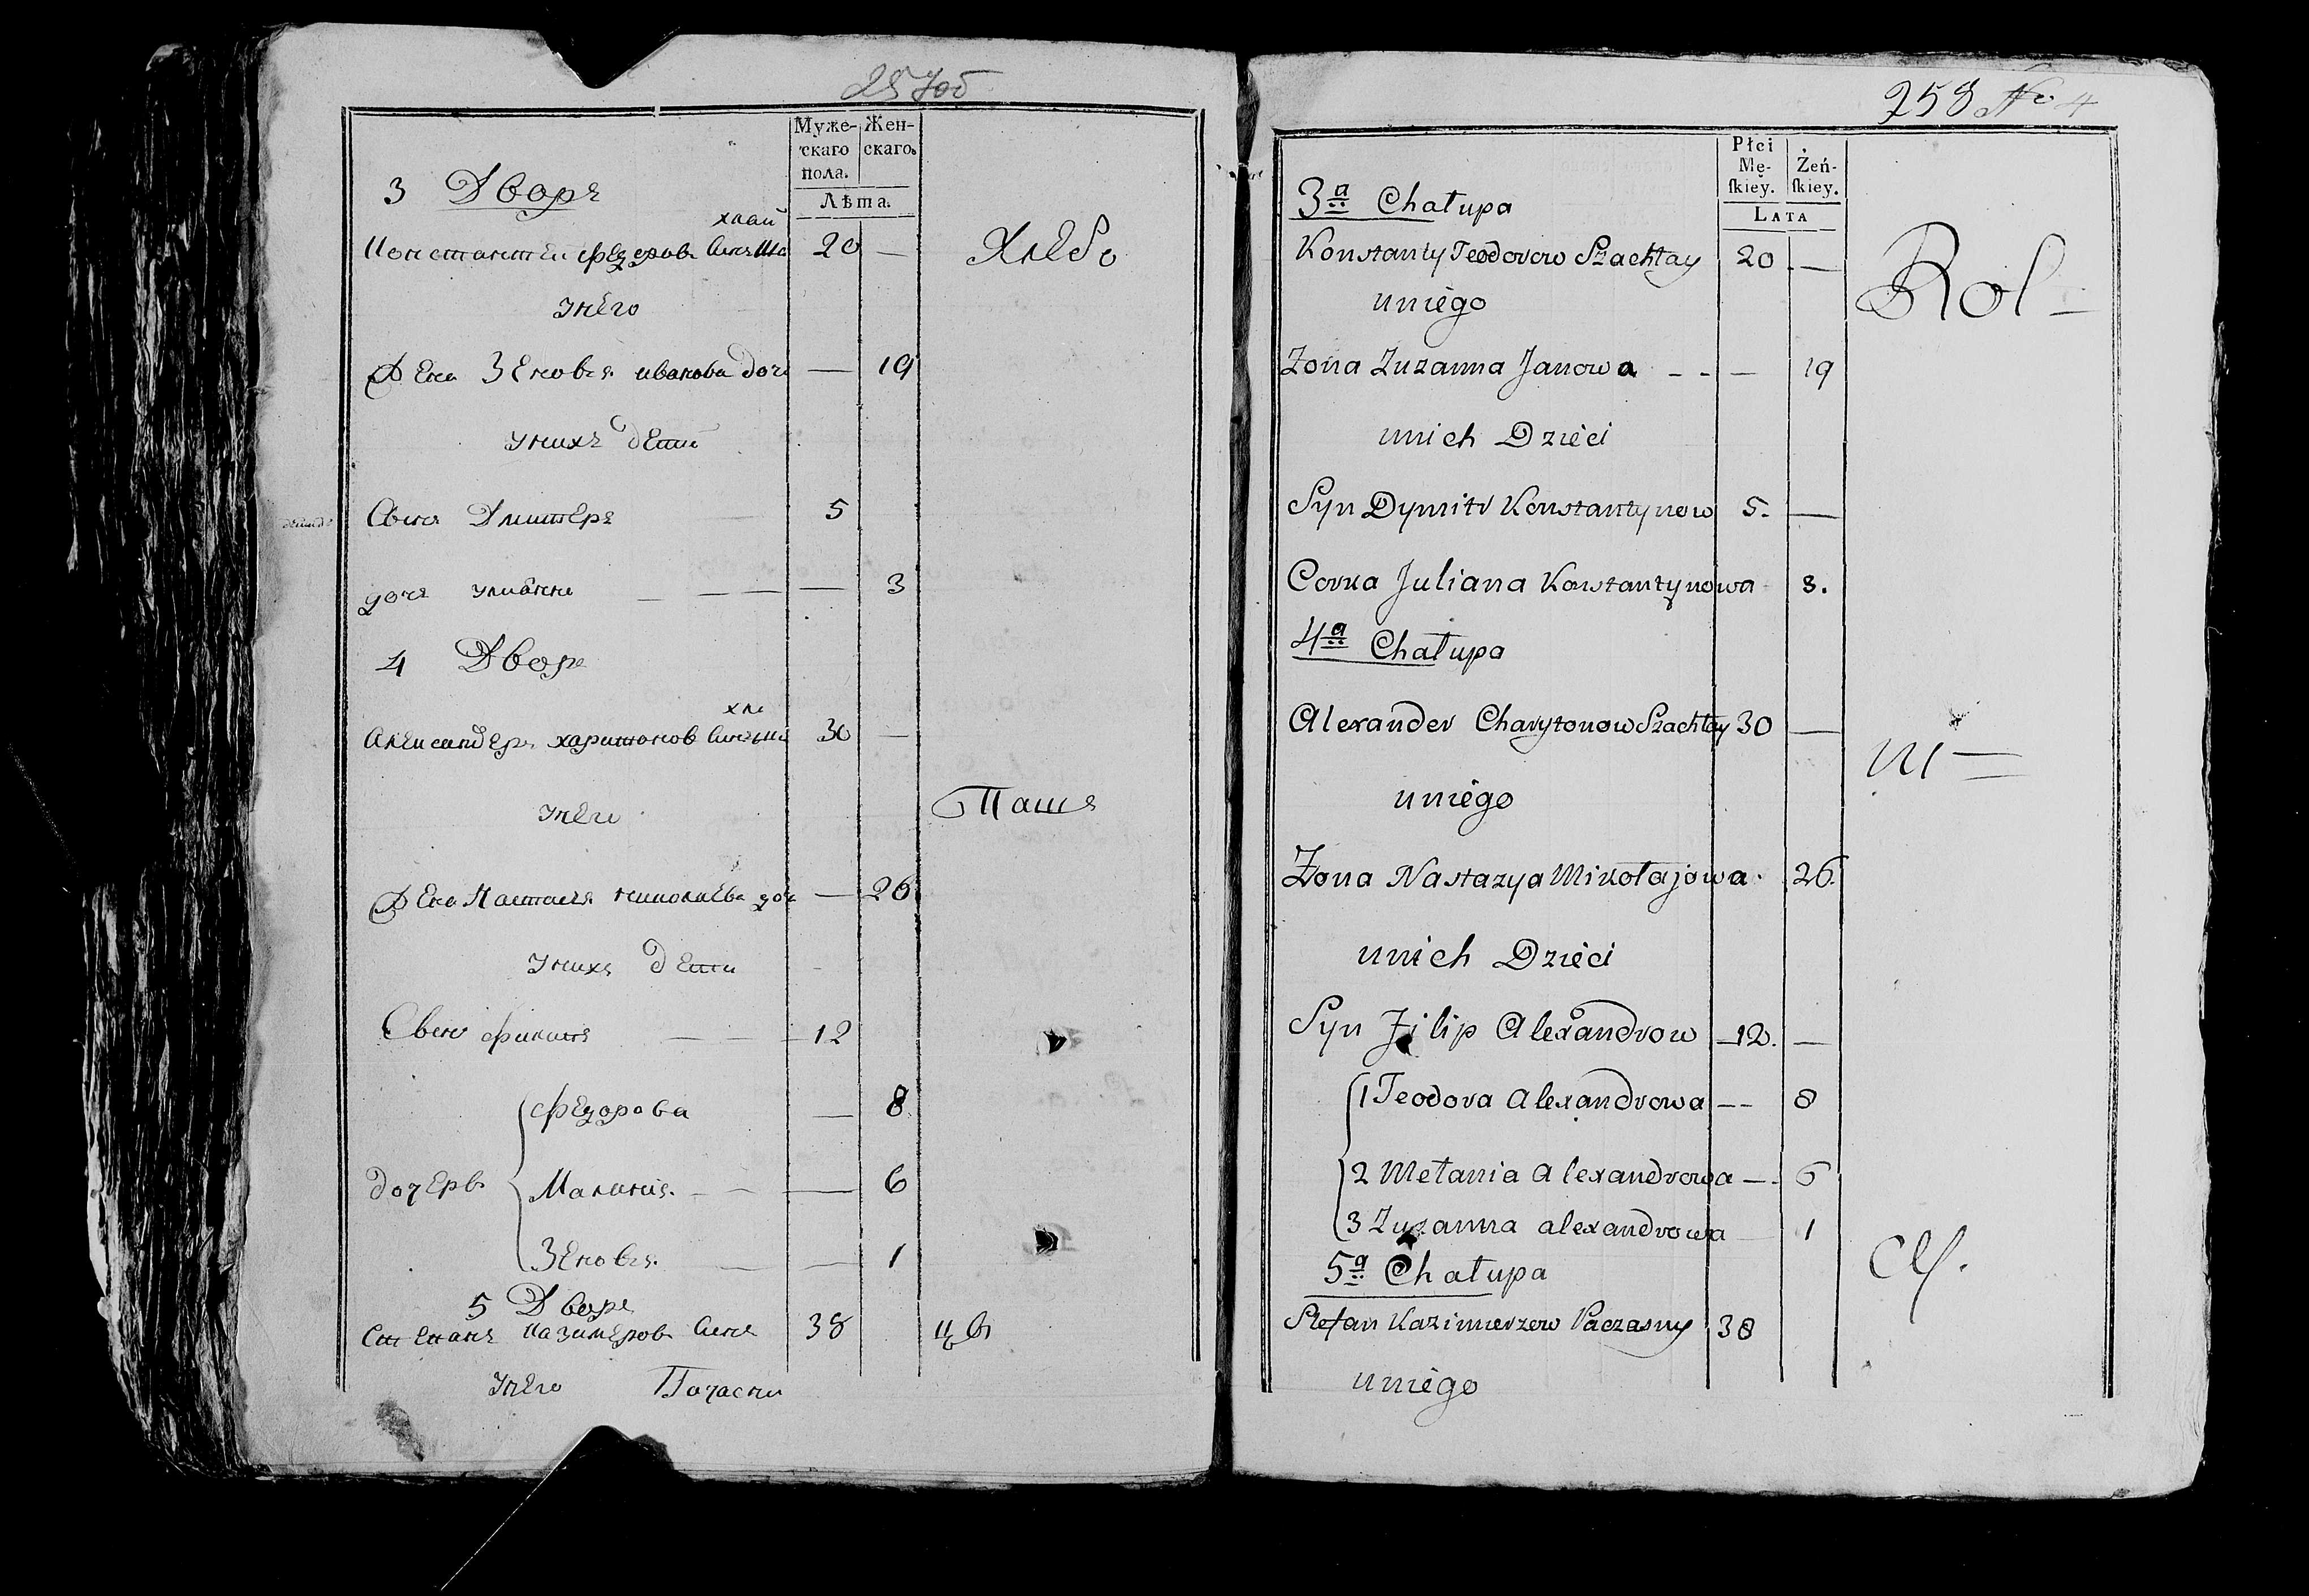 257об
Муже-скаго пола. Жен-скаго.
Лѣта.
3 Дворъ
хтай
Константин Федоровъ Синъ Ша 20 —
Хлебо
унего
Жена Зеновья иванова доч — 19
унихъ дети
Свинъ Дмитеръ 5
дочъ улияна — 3
4 Дворъ
хта
Александеръ харитонов Синъ Ша 30 —
унего
Паше
Жена Настасья николаева доч — 26
унихъ дети
Свинъ филипъ 12
федорова — 8
дочерв Малания — 6
Зеновъя — 1
5 Дворъ
Степанъ Казимеровъ Синъ 38
цѣ
унего Почасни
258 No 4
Płci Mę-ſkiey. Żeń-ſkiey.
LATA
3a Chałupa
Konstanty Teodorow Szachtay 20 —
Rol—
uniego
Zona Zuzanna Janowa — 19
unich Dzieci
Syn Dymitr Konstantynow 5. —
Corka Juliana Konstantynowa 3.
4a Chałupa
Alexander Charytonow Szachtay 30 —
ni—
uniego
Zona Nastazya Mikołajowa 26.
unich Dzieci
Syn Filip Alexandrow 12. —
1 Teodora Alexandrowa — 8
2 Mełania Alexandrowa — 6
3 Zuzanna alexandrowa 1
5a Chałupa
cy.
Stefan Kazimierzow Paczasny 38
uniego